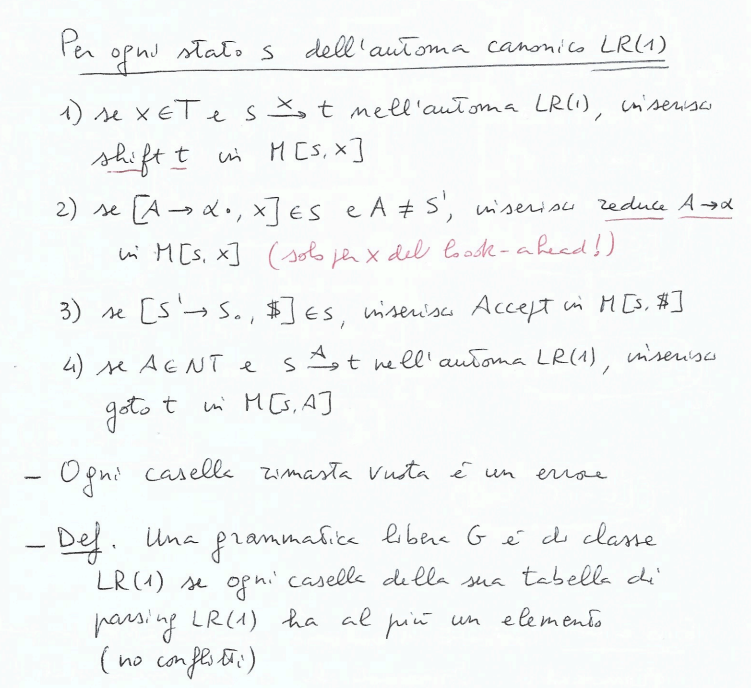 Per ogni stato s dell'automa canonico LR(1)
1) se x ∈ T e s –x→ t nell'automa LR(1), inserisci
shift t in M[s,x]
2) se [A → α•, x] ∈ s e A ≠ S', inserisci reduce A→α
in M[s,x] (solo per x del look-ahead!)
3) se [S' → S•, $] ∈ s, inserisci Accept in M[s,$]
4) se A ∈ NT e s –A→ t nell'automa LR(1), inserisci
goto t in M[s,A]
– Ogni casella rimasta vuota è un errore
– Def. Una grammatica libera G è di classe
LR(1) se ogni casella della sua tabella di
parsing LR(1) ha al più un elemento
(no conflitti)